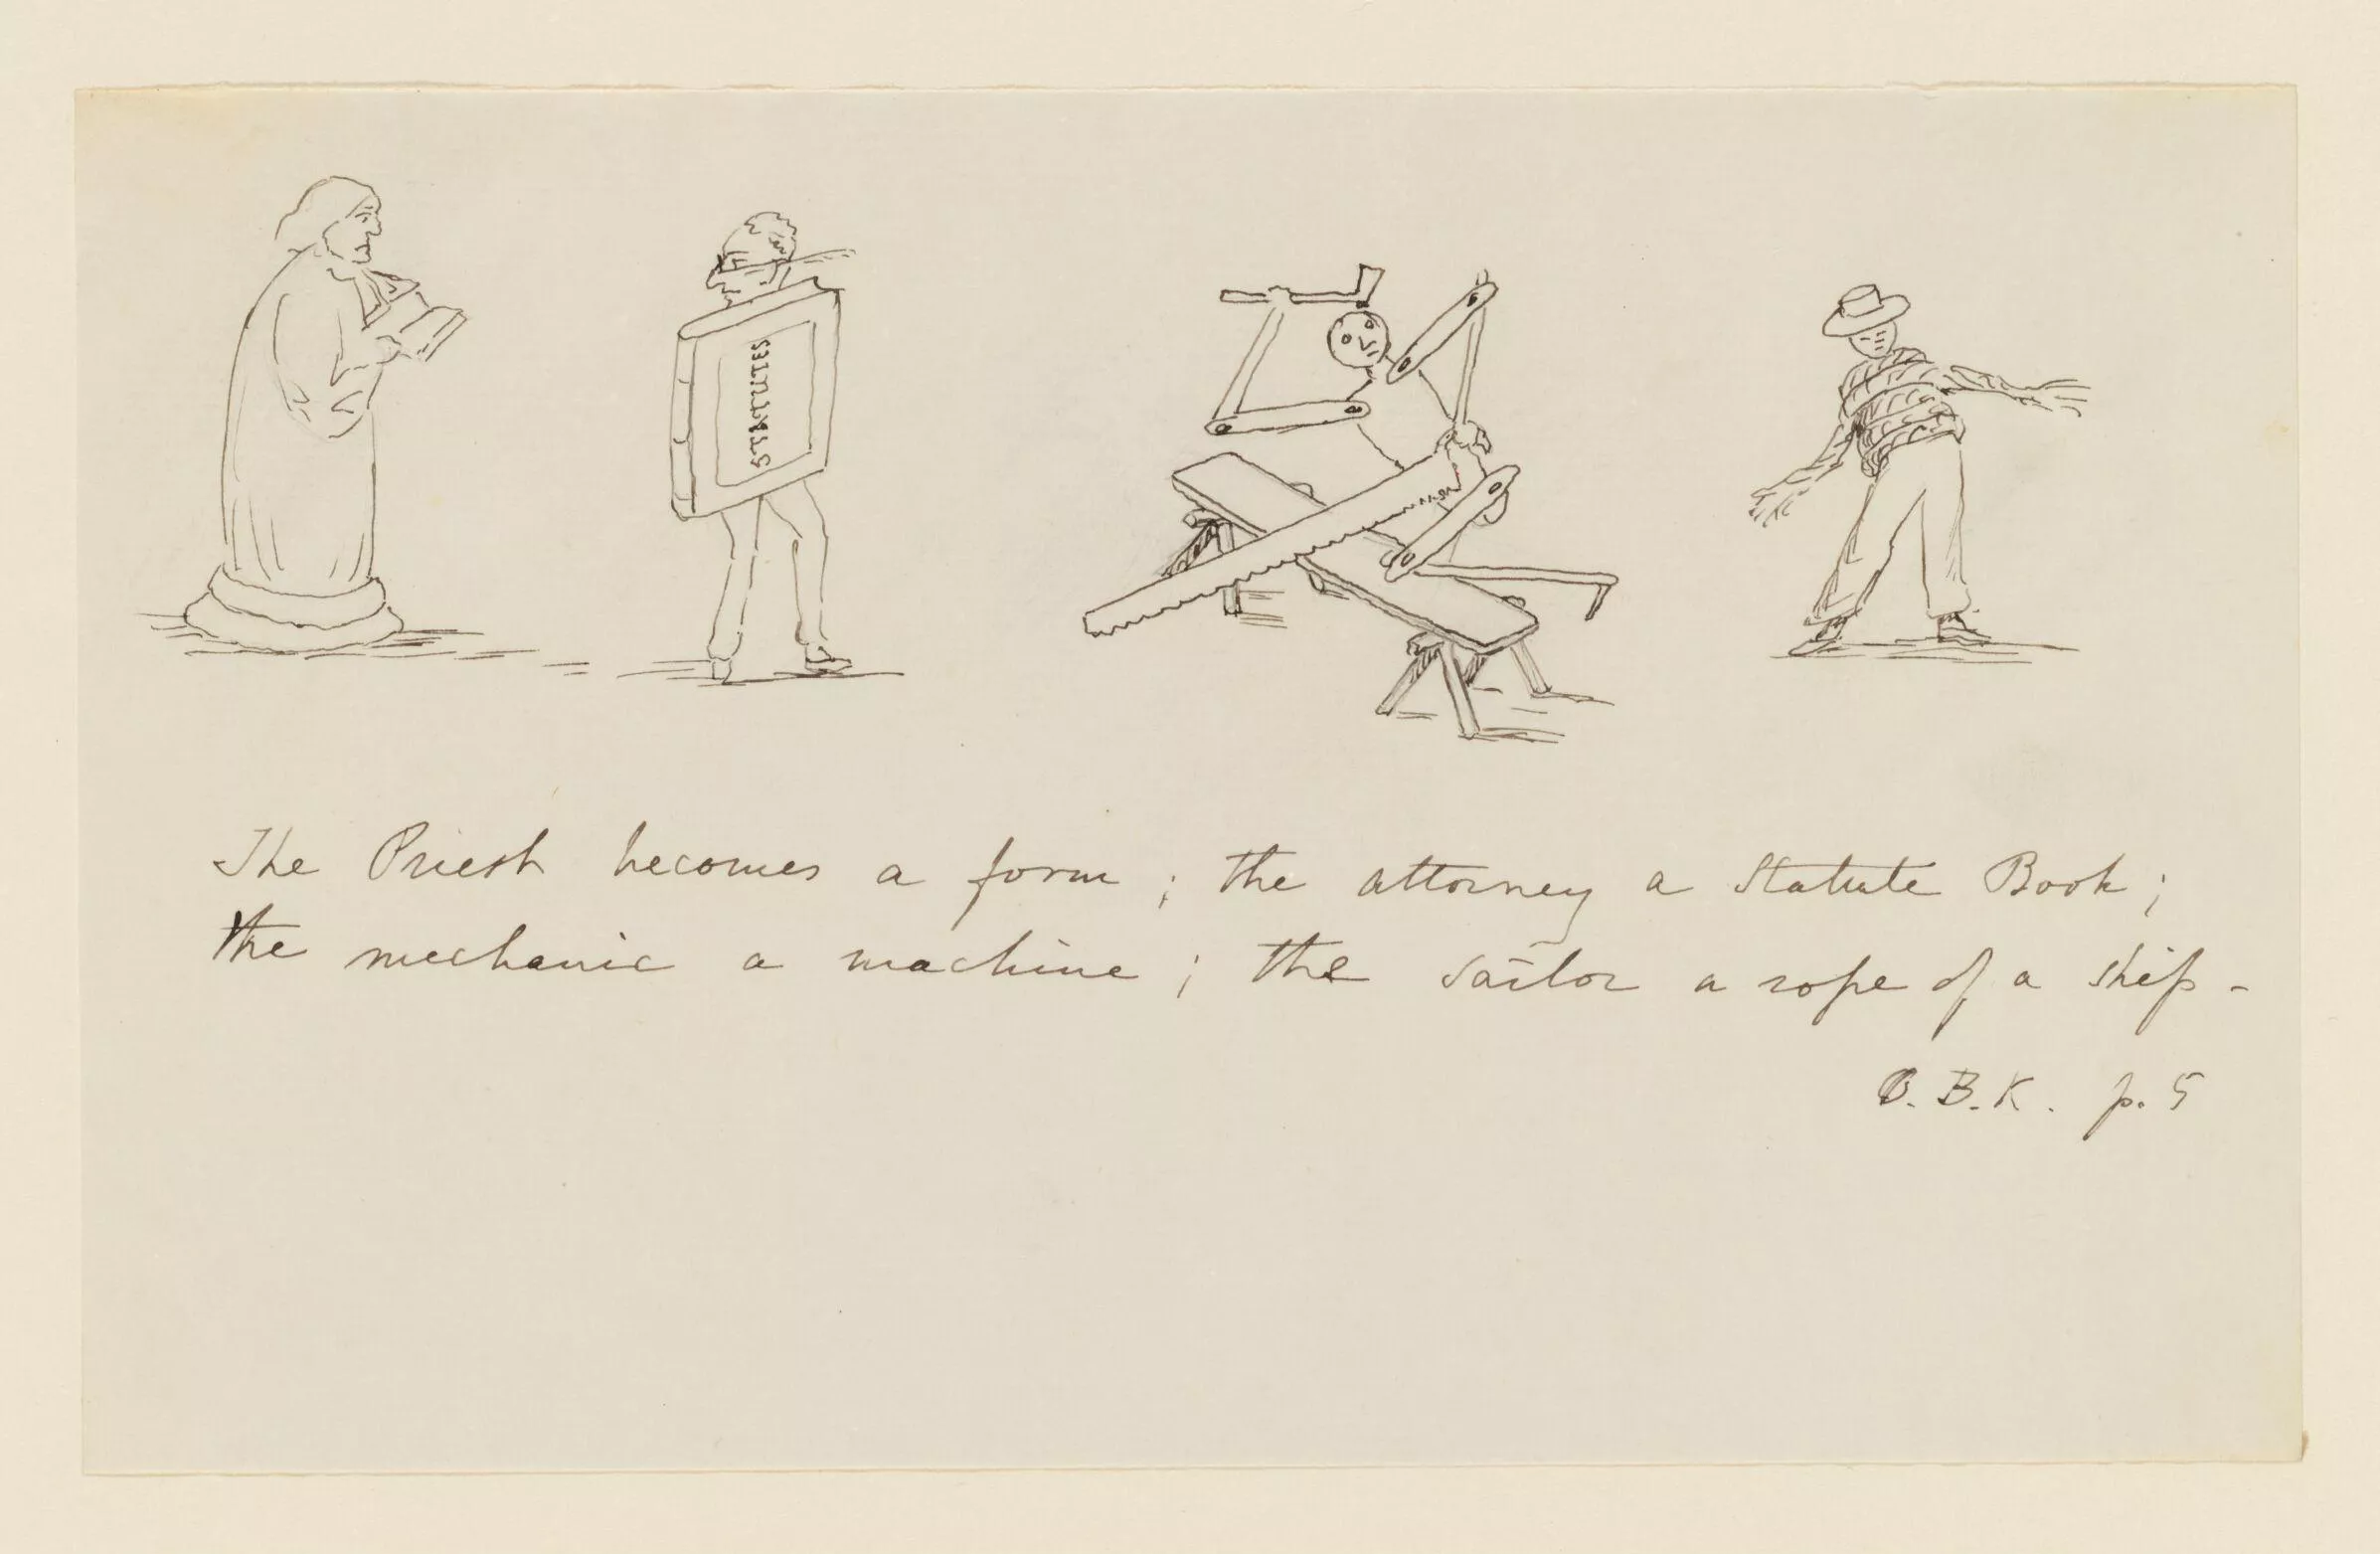 STATUTES
The Priest becomes a form ; the attorney a Statute Book ;
the mechanic a machine ; the sailor a rope of a ship -
Φ. B. K. p. 5